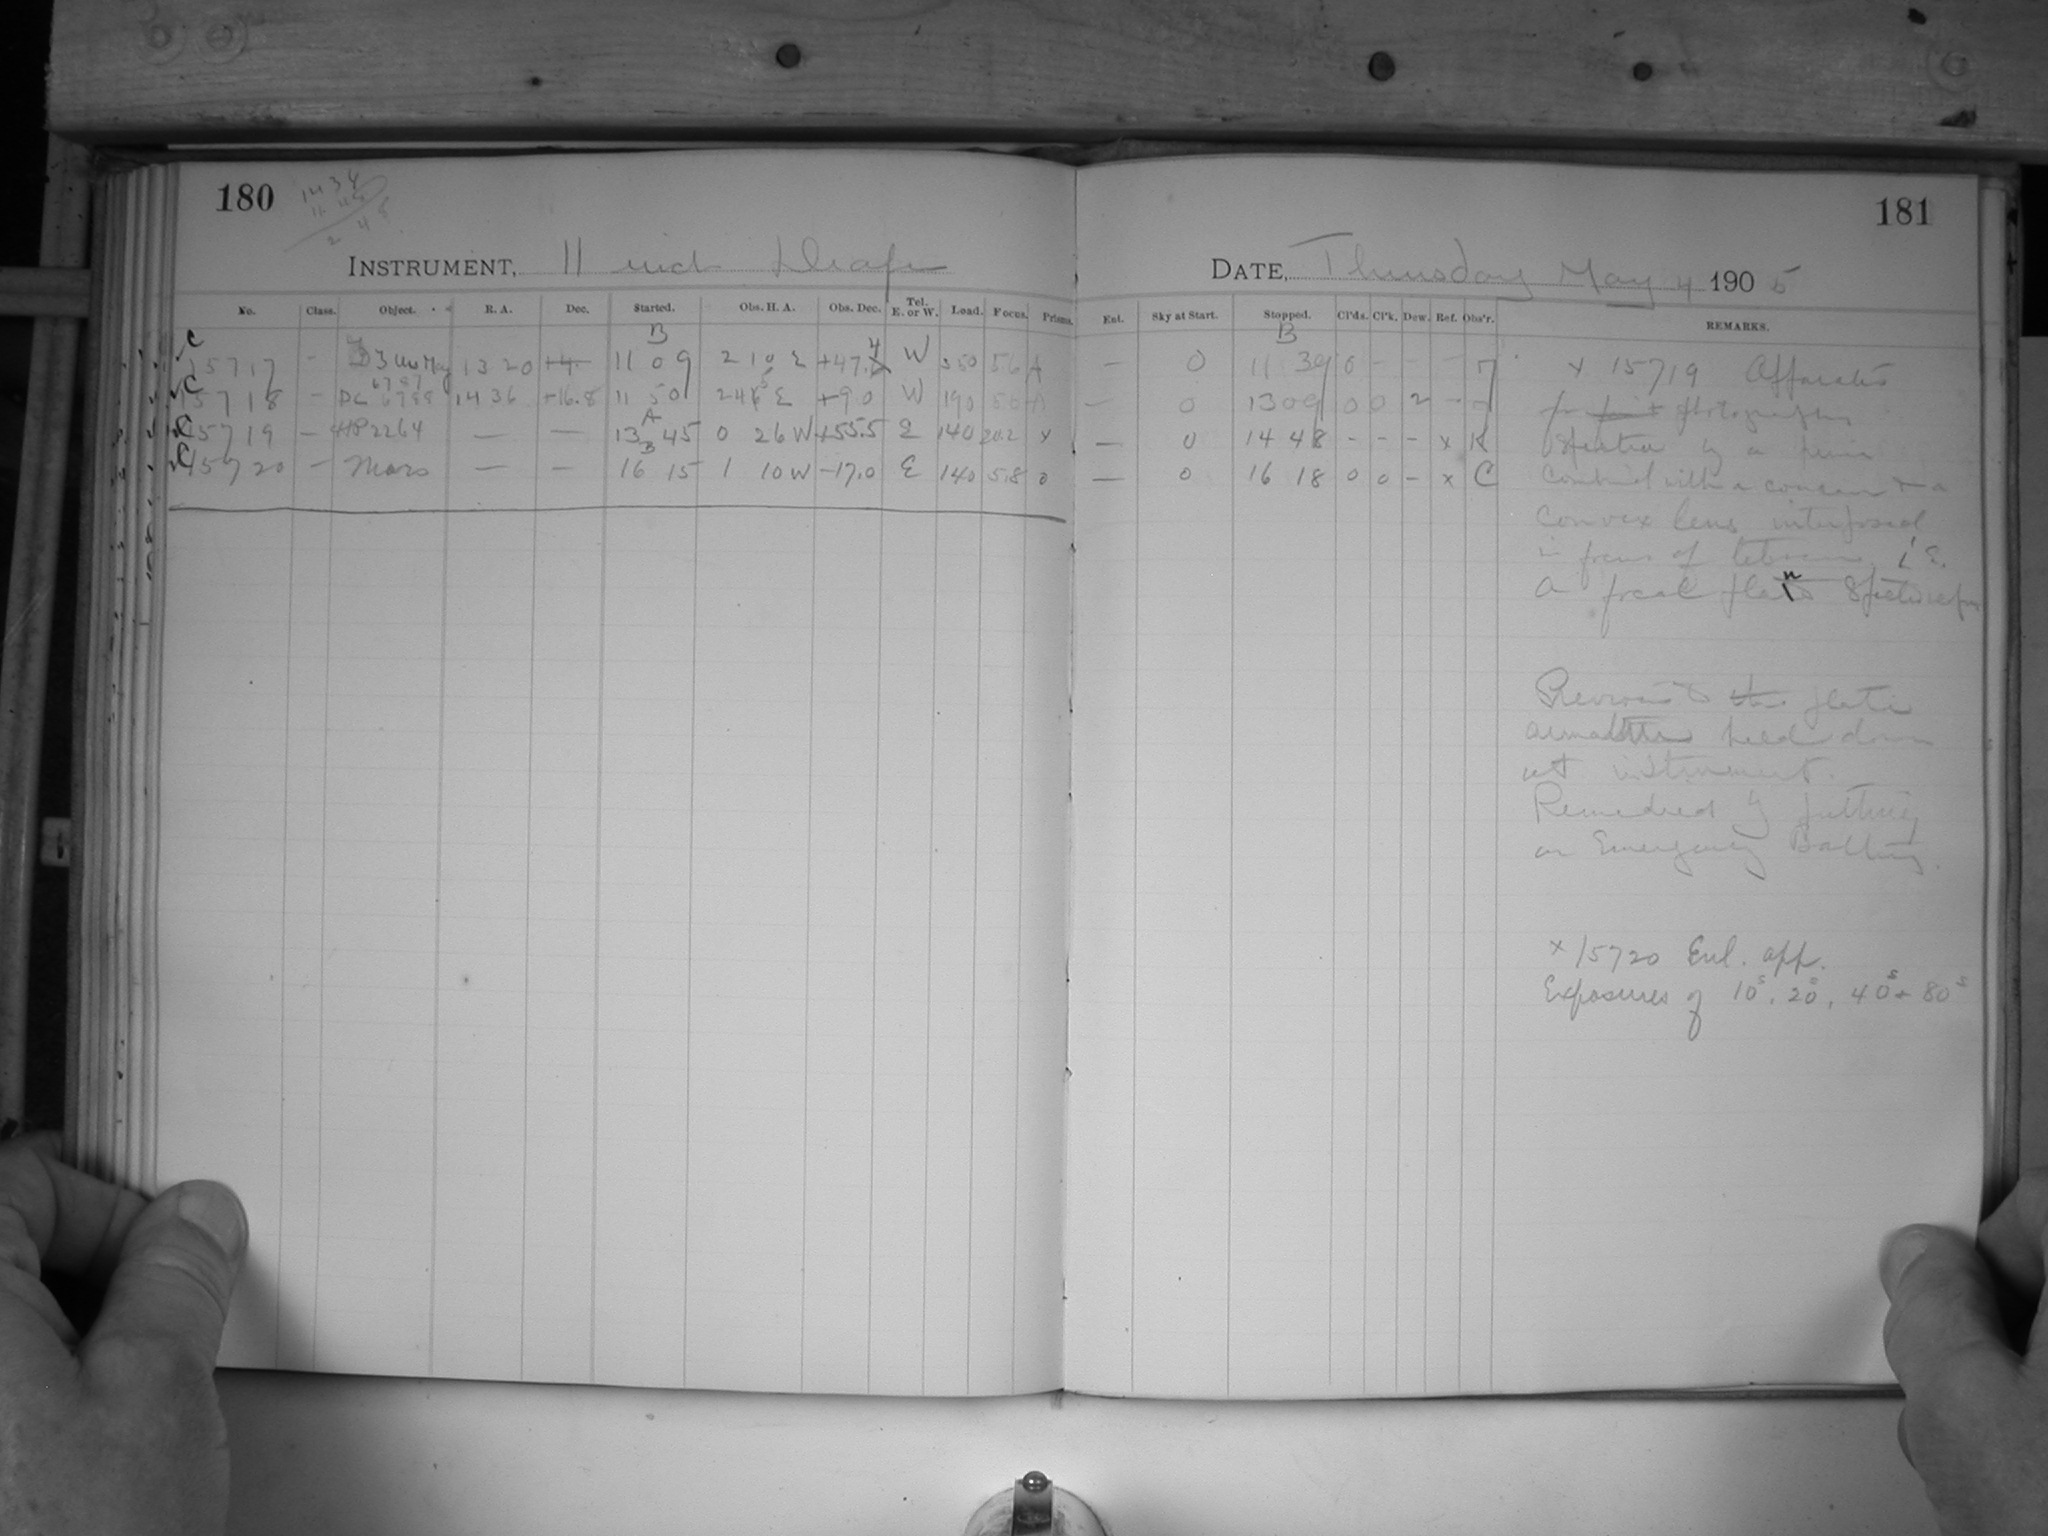 180
14 34
11 46
2 48
INSTRUMENT, 11 inch Draper
No. Class. Object. R. A. Dec. Started. Obs. H. A. Obs. Dec. Tel. E. or W. Load. Focus. Prisms.
C 15717 – 13 20 +4. B 11 09 2 10 E +47. W 350 5.6 A
C 15718 – DC 6787 6788 14 36 +16.8 11 50 2 46 E +9 0 W 190 5.0 A
C 15719 – HP 2264 — — A 13 45 0 26 W +55.5 E 140 20.2 x
C 15720 – Mars — — B 16 15 1 10 W –17.0 E 140 5.8 0
181
DATE, Thursday May 4 1905
Ent. Sky at Start. Stopped. Cl'ds. Cl'k. Dew. Ref. Obs'r. REMARKS.
— 0 B 11 39 0 - - -
— 0 13 09 0 0 2 -
— 0 14 48 - - - x K
— 0 16 18 0 0 - x C
x 15719 Apparatus
for photographing
Spectra by a
Combined with a concave & a
convex lens interposed
in focus of i.e.
a focal plane
Previous to plate
held down
instrument.
Remedied by putting
on Emergency Battery.
x 15720 Enl. app.
Exposures of 10s, 20s, 40s & 80s